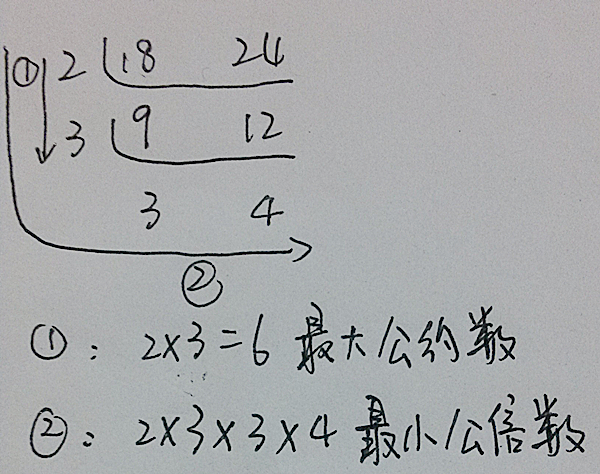 ① 2 18 24
3 9 12
3 4
②
①: 2×3=6 最大公约数
②: 2×3×3×4 最小公倍数